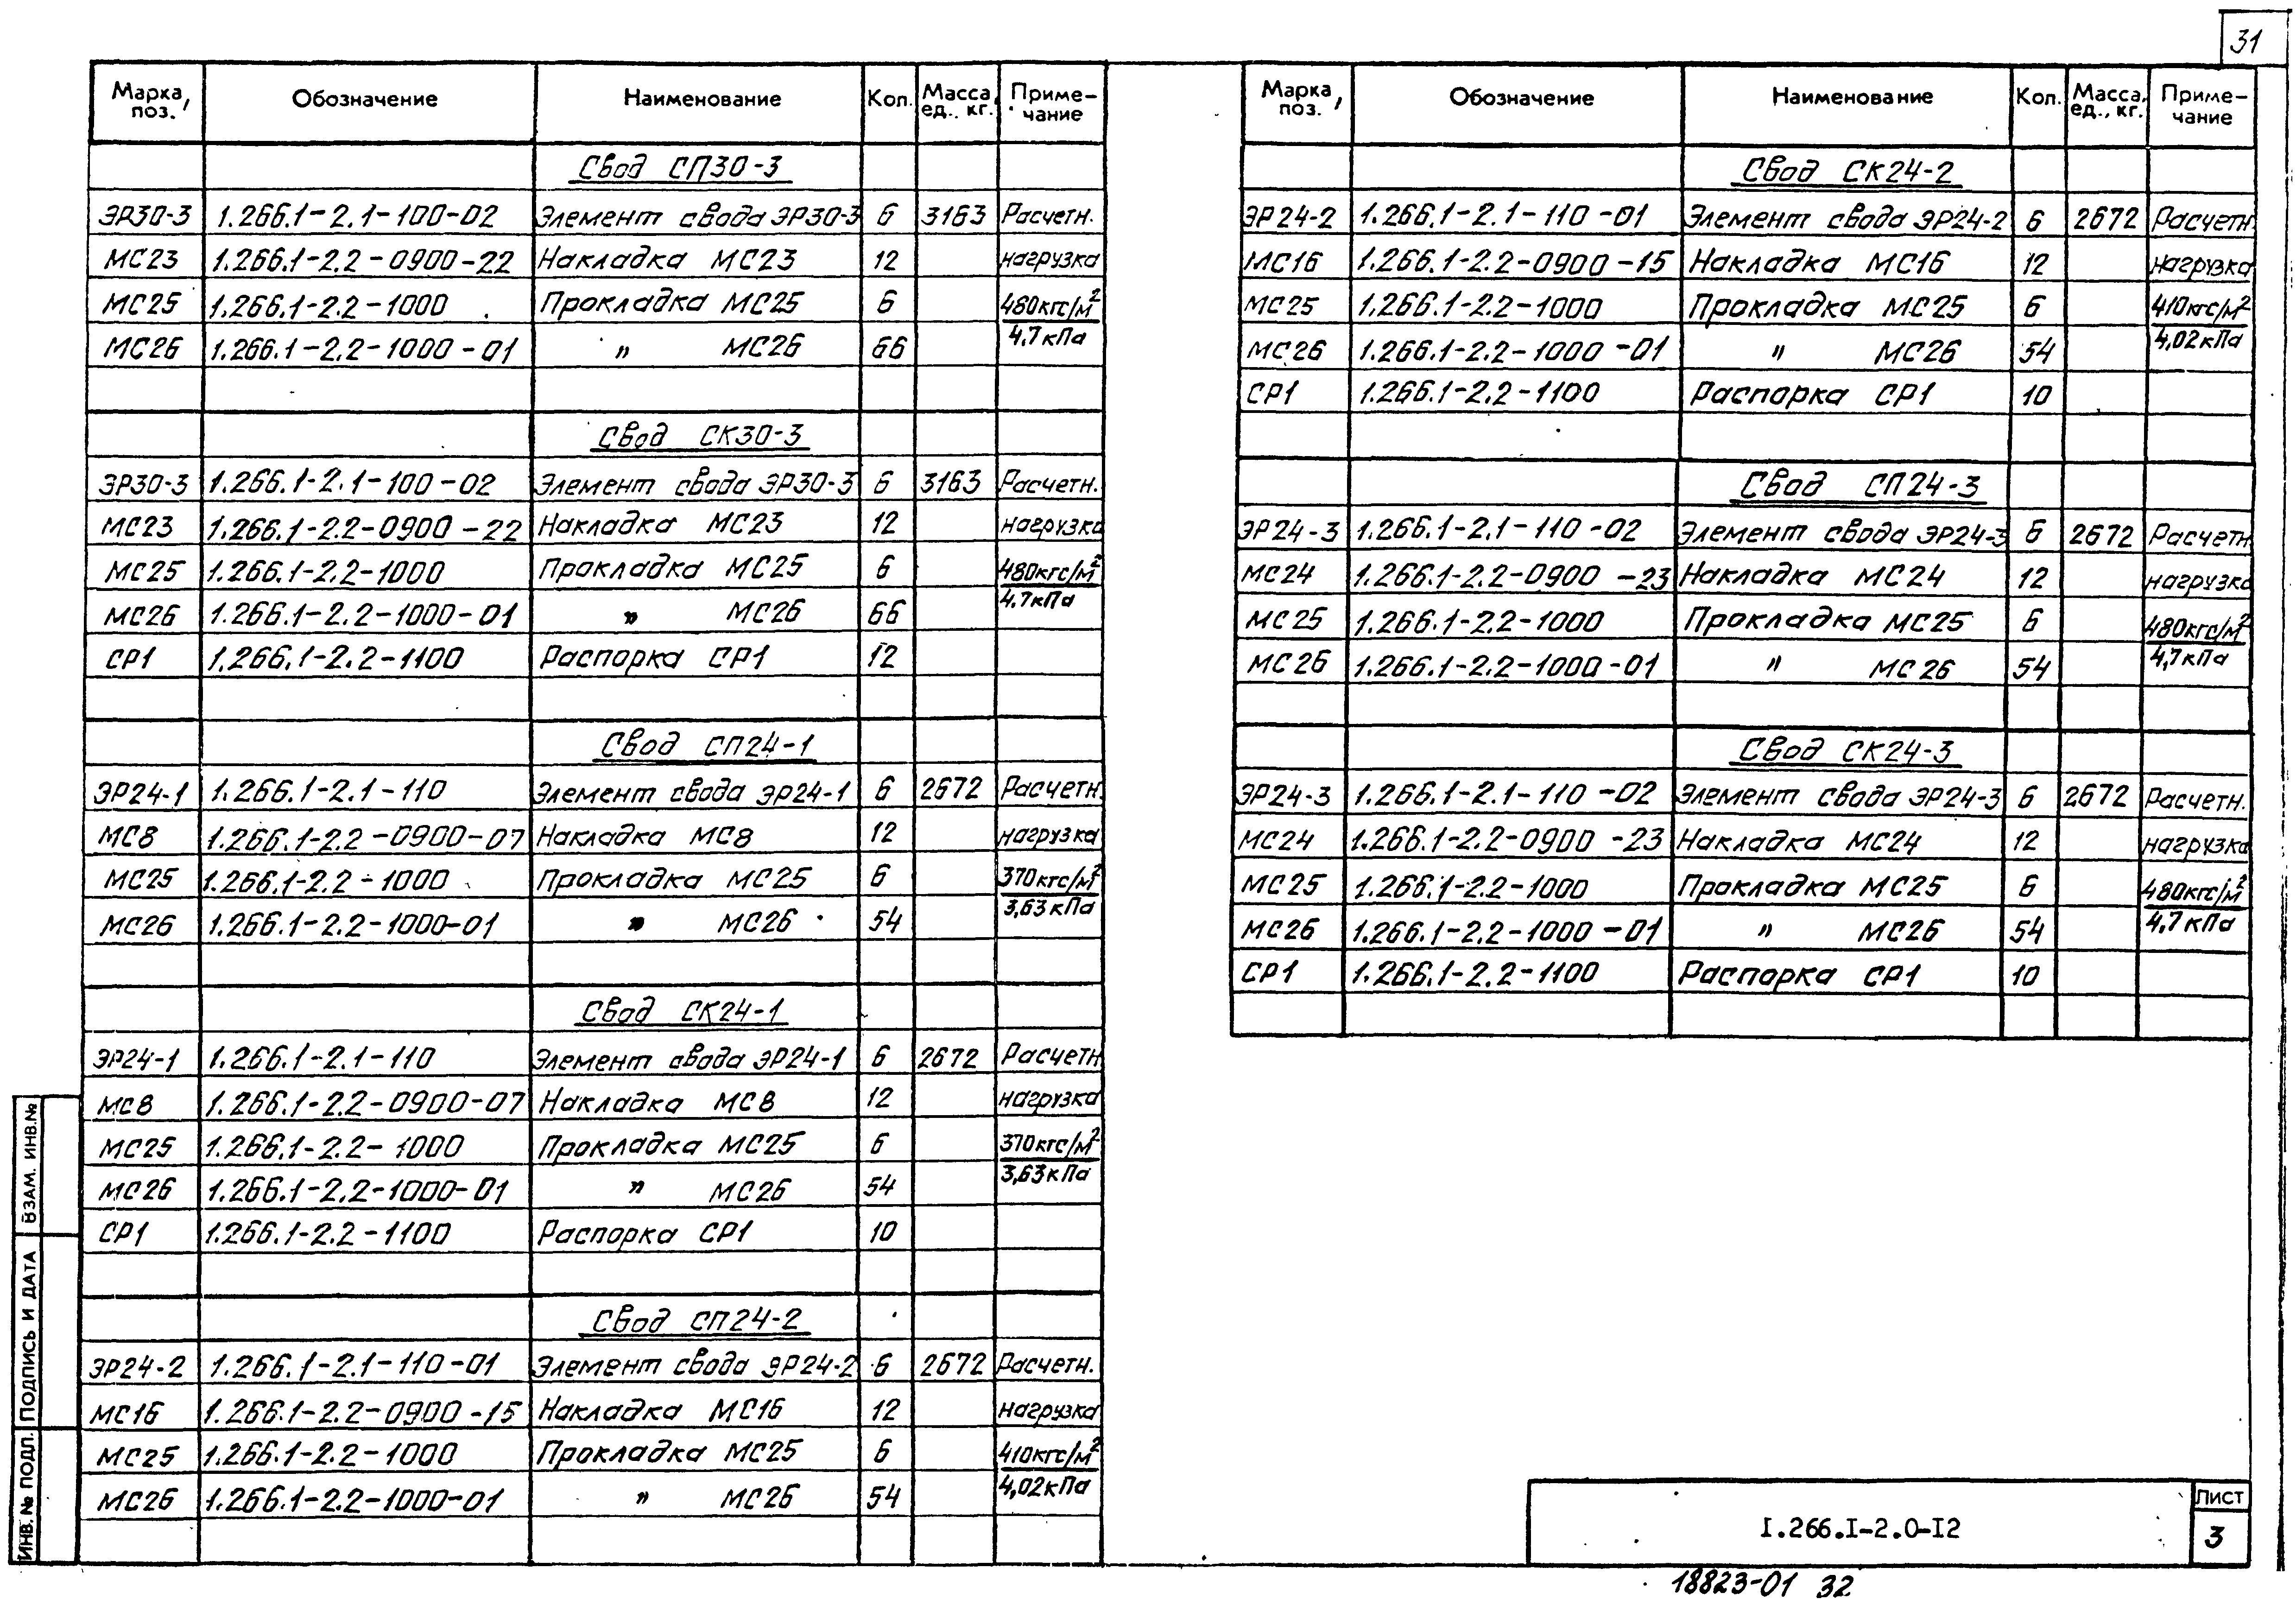 31
Марка, поз. Обозначение Наименование Кол. Масса, ед., кг. Примечание
Свод СП30-3
ЭР30-3 1.266.1-2.1-100-02 Элемент свода ЭР30-3 6 3163 Расчетн.
МС23 1.266.1-2.2-0900-22 Накладка МС23 12 нагрузка
МС25 1.266.1-2.2-1000 Прокладка МС25 6 480кгс/м²
МС26 1.266.1-2.2-1000-01 " МС26 66 4,7кПа
Свод СК30-3
ЭР30-3 1.266.1-2.1-100-02 Элемент свода ЭР30-3 6 3163 Расчетн.
МС23 1.266.1-2.2-0900-22 Накладка МС23 12 нагрузка
МС25 1.266.1-2.2-1000 Прокладка МС25 6 480кгс/м²
МС26 1.266.1-2.2-1000-01 " МС26 66 4,7кПа
СР1 1.266.1-2.2-1100 Распорка СР1 12
Свод СП24-1
ЭР24-1 1.266.1-2.1-110 Элемент свода ЭР24-1 6 2672 Расчетн.
МС8 1.266.1-2.2-0900-07 Накладка МС8 12 нагрузка
МС25 1.266.1-2.2-1000 Прокладка МС25 6 370кгс/м²
МС26 1.266.1-2.2-1000-01 " МС26 54 3,63кПа
Свод СК24-1
ЭР24-1 1.266.1-2.1-110 Элемент свода ЭР24-1 6 2672 Расчетн
МС8 1.266.1-2.2-0900-07 Накладка МС8 12 нагрузка
МС25 1.266.1-2.2-1000 Прокладка МС25 6 370кгс/м²
МС26 1.266.1-2.2-1000-01 " МС26 54 3,63кПа
СР1 1.266.1-2.2-1100 Распорка СР1 10
Свод СП24-2
ЭР24-2 1.266.1-2.1-110-01 Элемент свода ЭР24-2 6 2672 Расчетн.
МС16 1.266.1-2.2-0900-15 Накладка МС16 12 нагрузка
МС25 1.266.1-2.2-1000 Прокладка МС25 6 410кгс/м²
МС26 1.266.1-2.2-1000-01 " МС26 54 4,02кПа
Марка, поз. Обозначение Наименование Кол. Масса, ед., кг. Примечание
Свод СК24-2
ЭР24-2 1.266.1-2.1-110-01 Элемент свода ЭР24-2 6 2672 Расчетн.
МС16 1.266.1-2.2-0900-15 Накладка МС16 12 нагрузка
МС25 1.266.1-2.2-1000 Прокладка МС25 6 410кгс/м²
МС26 1.266.1-2.2-1000-01 " МС26 54 4,02кПа
СР1 1.266.1-2.2-1100 Распорка СР1 10
Свод СП24-3
ЭР24-3 1.266.1-2.1-110-02 Элемент свода ЭР24-3 6 2672 Расчетн
МС24 1.266.1-2.2-0900-23 Накладка МС24 12 нагрузка
МС25 1.266.1-2.2-1000 Прокладка МС25 6 480кгс/м²
МС26 1.266.1-2.2-1000-01 " МС26 54 4,7кПа
Свод СК24-3
ЭР24-3 1.266.1-2.1-110-02 Элемент свода ЭР24-3 6 2672 Расчетн.
МС24 1.266.1-2.2-0900-23 Накладка МС24 12 нагрузка
МС25 1.266.1-2.2-1000 Прокладка МС25 6 480кгс/м²
МС26 1.266.1-2.2-1000-01 " МС26 54 4,7кПа
СР1 1.266.1-2.2-1100 Распорка СР1 10
ИНВ. № ПОДЛ. ПОДПИСЬ И ДАТА ВЗАМ. ИНВ.№
1.266.1-2.0-12
Лист
3
18823-01 32